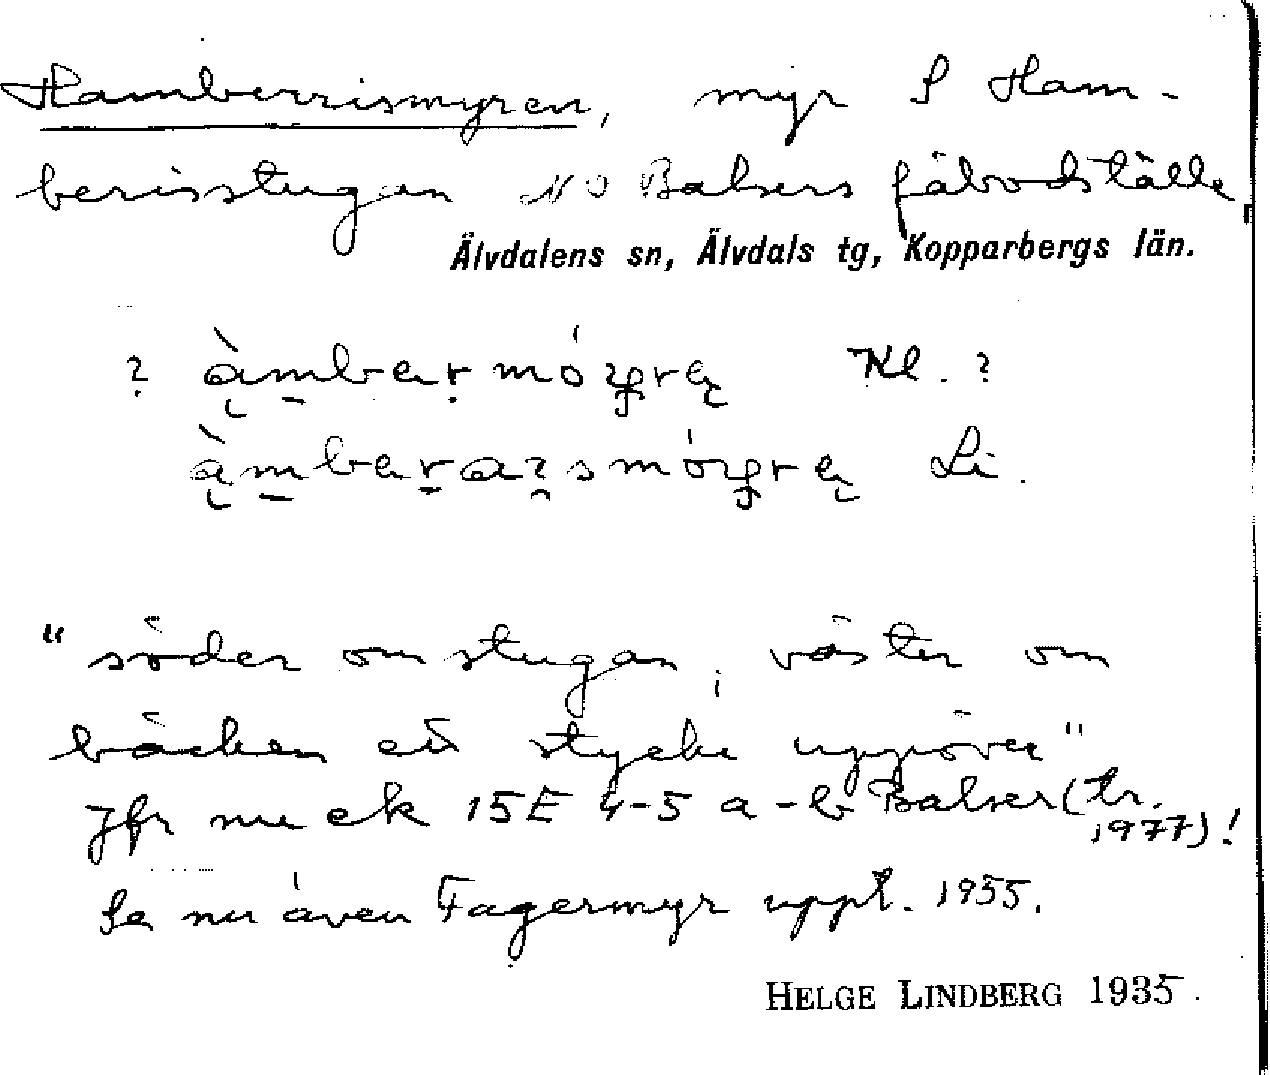 Hamberrismyren, myr S Ham-
berisstugan NO Balsers fäbodställe,
Älvdalens sn, Älvdals tg, Kopparbergs län.
? Kl. ?
Li.
"söder om stugan, väster om
bäcken ett stycke uppöver"
Jfr nu ek 15E 4-5 a-b Balser (tr.
1977)!
Se nu även Fagermyr uppt. 1955.
HELGE LINDBERG 1935.